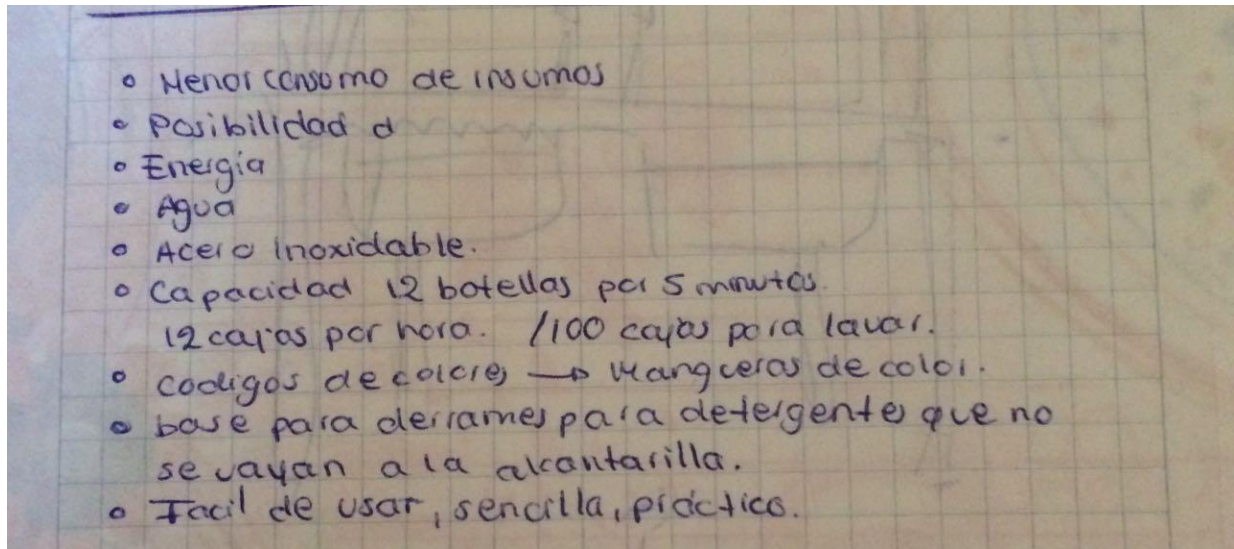 • Menor consumo de insumos
• Posibilidad d
• Energía
• Agua
• Acero Inoxidable.
• Capacidad 12 botellas por 5 minutos.
12 cajas por hora. /100 cajas para lavar.
• codigos de colores → Mangueras de color.
• base para derrames para detergentes que no
se vayan a la alcantarilla.
• Facil de usar, sencilla, práctico.